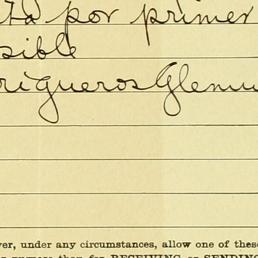 por primer
sible
rigueros Glenn
ver, under any circumstances, allow one of these
than for RECEIVING or SENDING